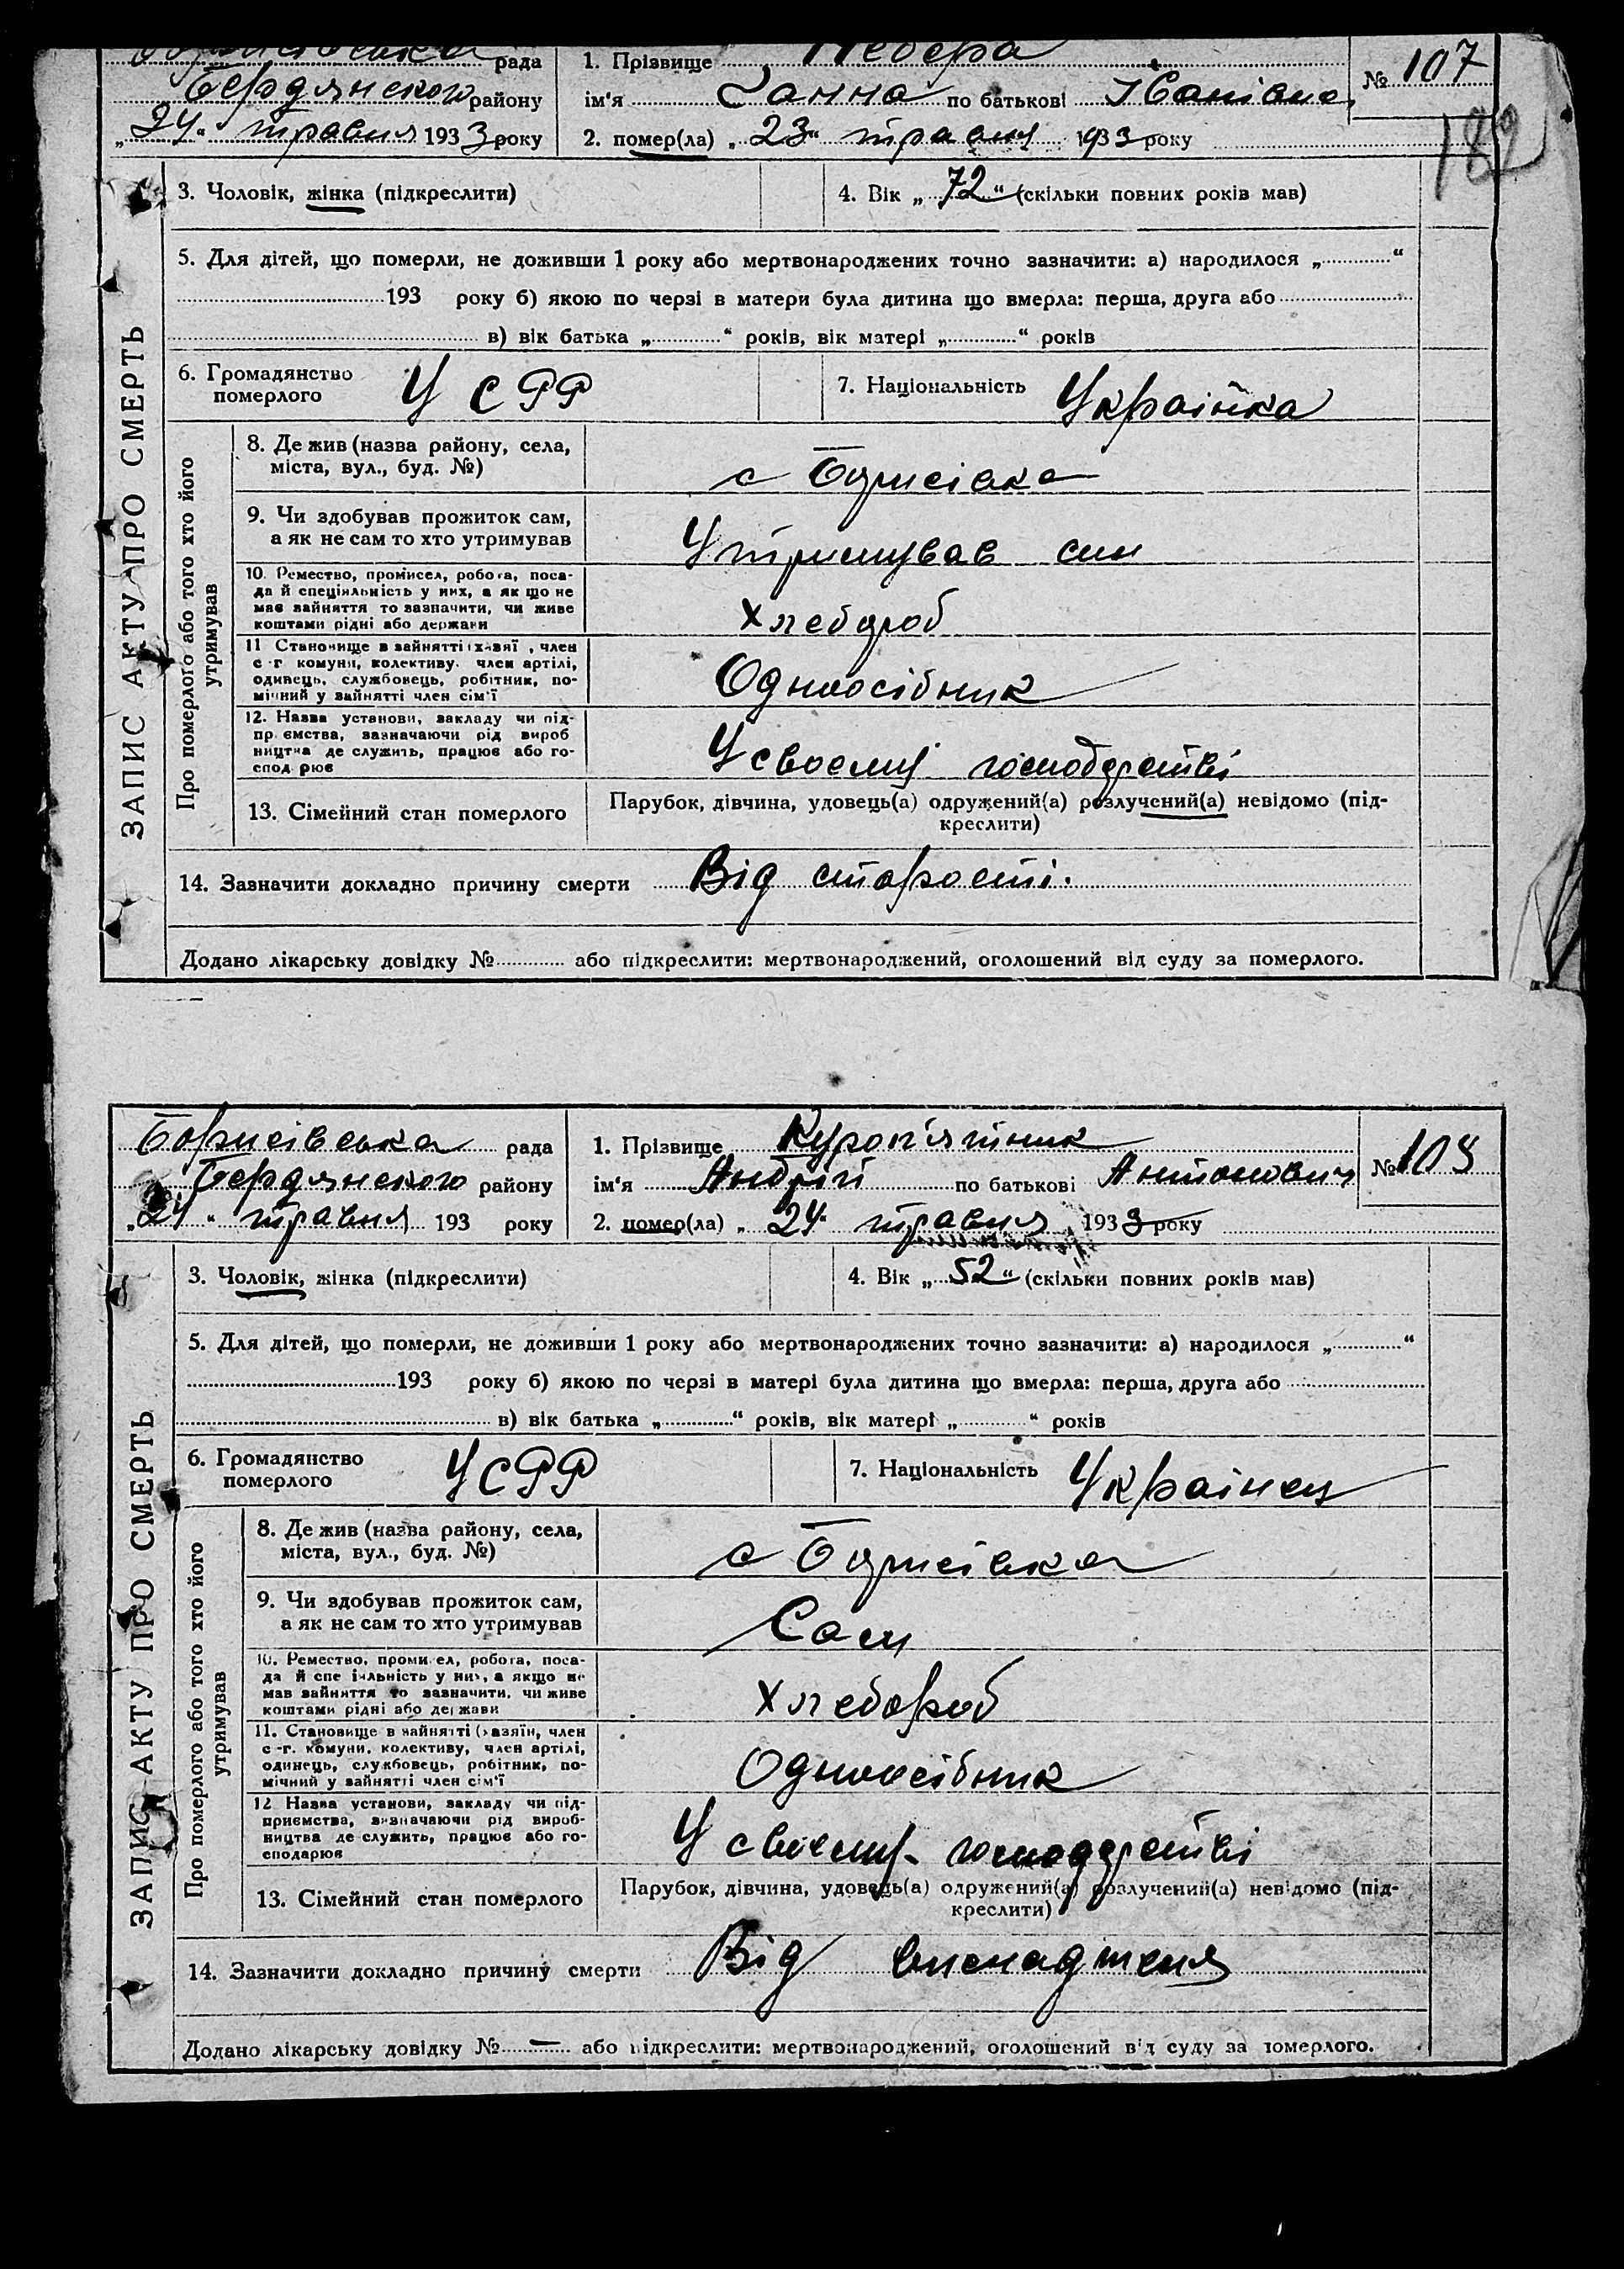 рада 1. Прізвище Небера № 107
Бердянского району ім'я Ганна по батькові Іванівна
„24“ травня 1933 року 2. помер(ла) „23“ травня 1933 року
182
3. Чоловік, жінка (підкреслити) 4. Вік „72“ (скільки повних років мав)
5. Для дітей, що померли, не доживши 1 року або мертвонароджених точно зазначити: а) народилося „ “
193 року б) якою по черзі в матери була дитина що вмерла: перша, друга або
в) вік батька „ “ років, вік матері „ “ років
6. Громадянство померлого УСРР 7. Національність Українка
ЗАПИС АКТУ ПРО СМЕРТЬ
Про померлого або того хто його утримував
8. Де жив (назва району, села,
міста, вул., буд. №) с Борисівка
9. Чи здобував прожиток сам,
а як не сам то хто утримував Утримував син
10. Ремество, промисел, робота, поса-
да й спеціяльність у них, а як що не
має зайняття то зазначити, чи живе
коштами рідні або держави Хлебороб
11 Становище в зайнятті , член
с-г комуни, колективу, член артілі,
одинець, службовець, робітник, по-
мічний у зайнятті член сім'ї Одноосібник
12. Назва установи, закладу чи під-
пр ємства, зазначаючи рід вироб
ництва де служить, працює або го-
спод рює У своему господарстві
13. Сімейний стан померлого Парубок, дівчина, удовець(а) одружений(а) розлучений(а) невідомо (під-
креслити)
14. Зазначити докладно причину смерти Від старості.
Додано лікарську довідку № або підкреслити: мертвонароджений, оголошений від суду за померлого.
Борисівська рада 1. Прізвище Куроп'ятник №
Бердянского району ім'я Андрій по батькові Антонович
„24“ травня 193 року 2. помер(ла) „24“ травня 1933 року
3. Чоловік, жінка (підкреслити) 4. Вік „52“ (скільки повних років мав)
5. Для дітей, що померли, не доживши 1 року або мертвонароджених точно зазначити: а) народилося „ “
193 року б) якою по черзі в матері була дитина що вмерла: перша, друга або
в) вік батька „ “ років, вік матері „ “ років
6. Громадянство померлого УСРР 7. Національність Українец
ЗАПИС АКТУ ПРО СМЕРТЬ
Про померлого або того хто його утримував
8. Де жив (назва району, села,
міста, вул., буд. №) с Борисівка
9. Чи здобував прожиток сам,
а як не сам то хто утримував Сам
10. Ремество, промисел, робота, поса-
да й спе іяльність у них, а якщо не
мав зайняття то зазначити, чи живе
коштами рідні або держави Хлебороб
11. Становище в зайнятті (хазяїн, член
с-г. комуни, колективу, член артілі,
одинець, службовець, робітник, по-
мічний у зайнятті член сім'ї Одноосібник
12 Назва установи, закладу чи під-
приємства, зазначаючи рід вироб-
ництва де служить, працює або го-
сподарює У своему господарстві
13. Сімейний стан померлого Парубок, дівчина, удовець(а) одружений(а) розлучений(а) невідомо (під-
креслити)
14. Зазначити докладно причину смерти Від виснадженя
Додано лікарську довідку № — або підкреслити: мертвонароджений, оголошений від суду за померлого.